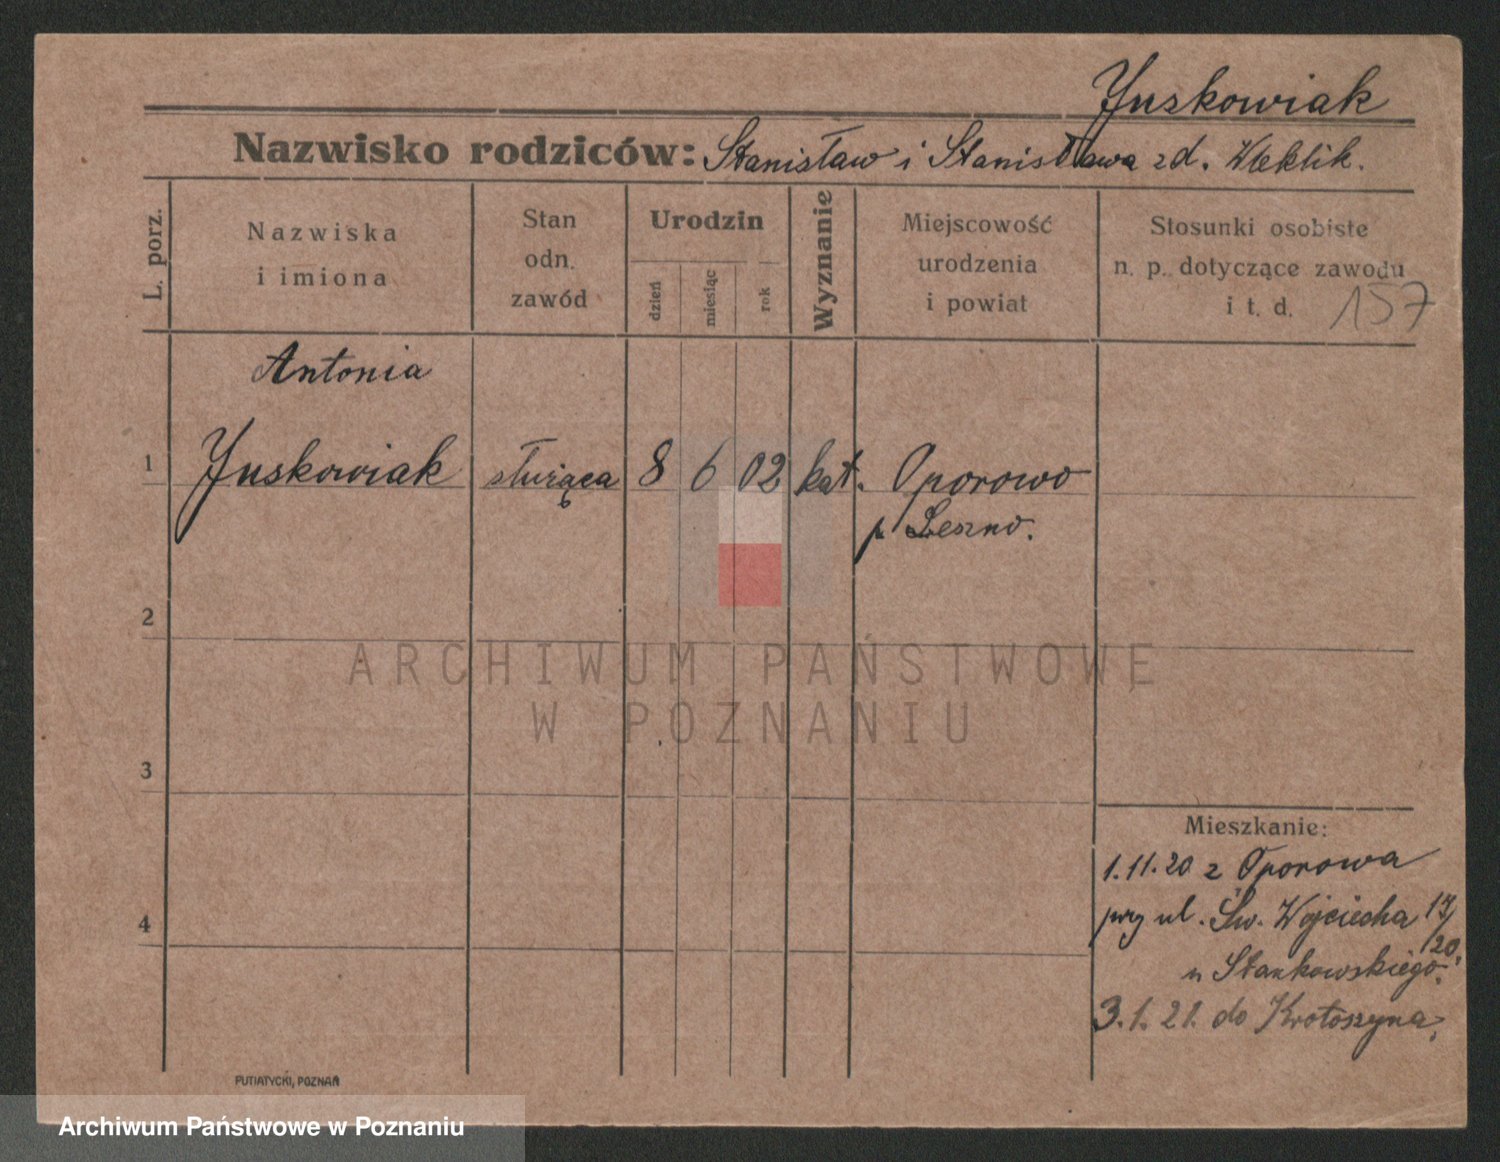 Juskowiak
Nazwisko rodziców: Stanisław i Stanisława zd. Weklik.
L. porz.
Nazwiska
i imiona
Stan
odn.
zawód
Urodzin
dzień
miesiąc
rok
Wyznanie
Miejscowość
urodzenia
i powiat
Stosunki osobiste
n. p. dotyczące zawodu
i t. d.
157
Antonia
1 Juskowiak służąca 8 6 02 kat. Oporowo
p Leszno.
2
ARCHIWUM PAŃSTWOWE
W POZNANIU
3
Mieszkanie:
1.11.20 z Oporowa
4
przy ul. Św. Wojciecha 17/
20.
u Stankowskiego.
3.1.21. do Krotoszyna.
PUTIATYCKI, POZNAŃ
Archiwum Państwowe w Poznaniu